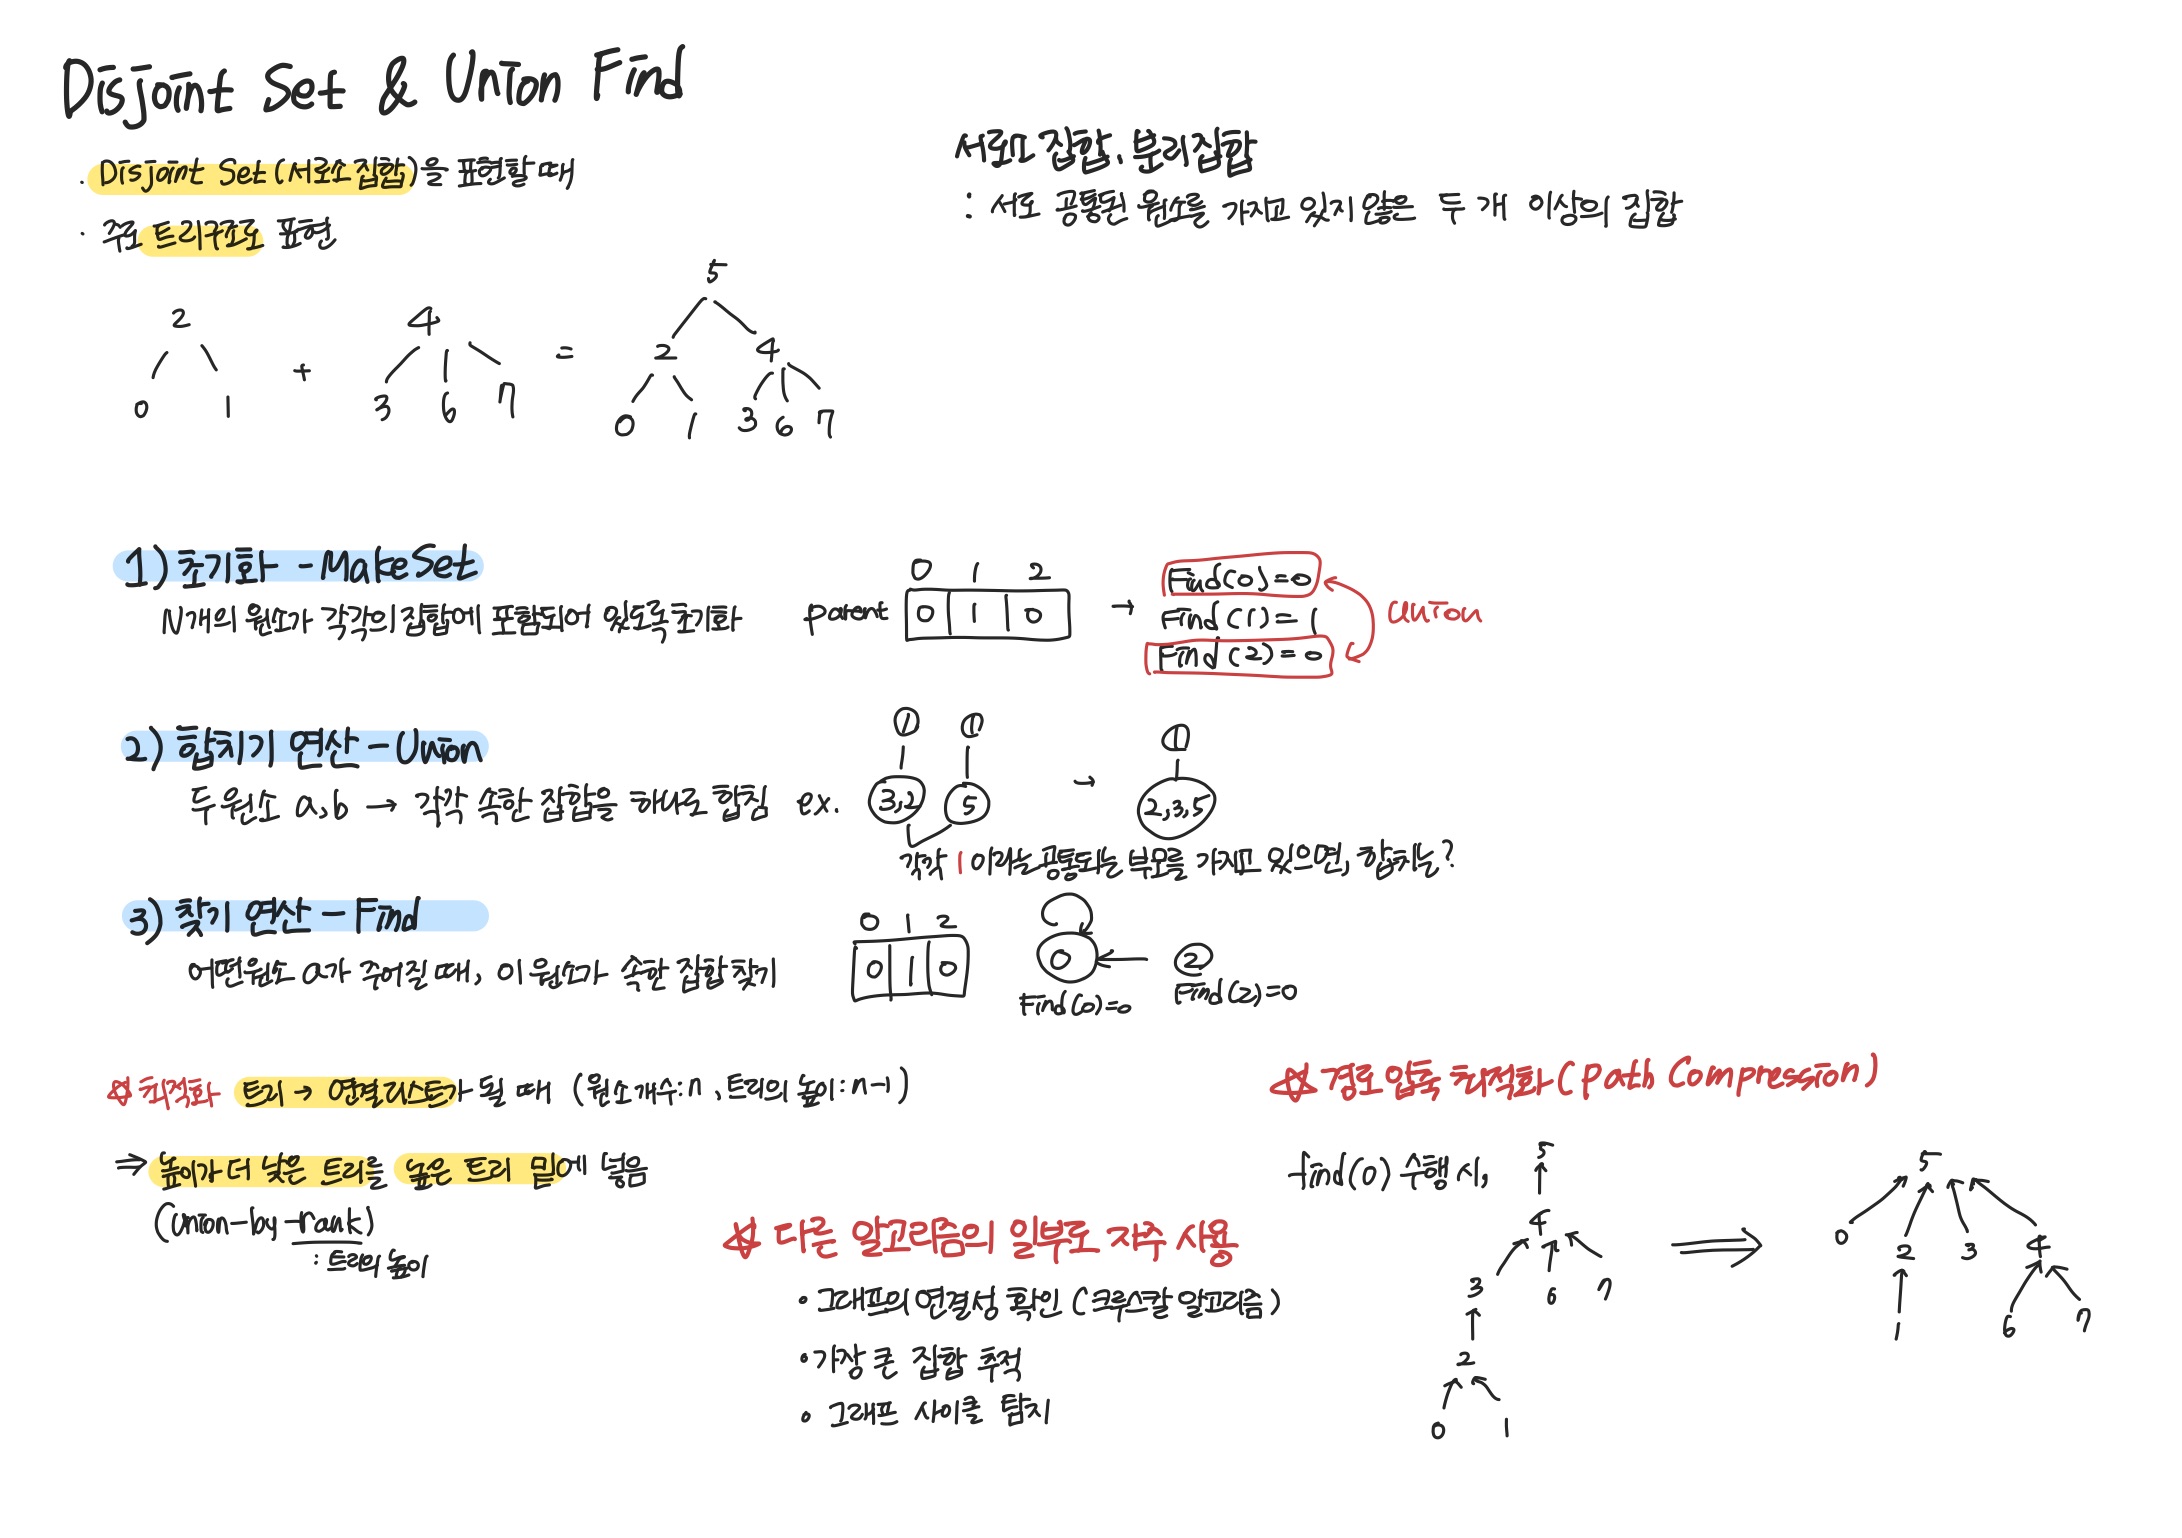 Disjoint Set & Union Find
· Disjoint Set (서로소 집합)을 표현할 때
· 주로 트리구조로 표현
서로소 집합, 분리집합
: 서로 공통된 원소를 가지고 있지 않은 두 개 이상의 집합
5
2 4 2 4
+ =
0 1 3 6 7 0 1 3 6 7
1) 초기화 - MakeSet
N개의 원소가 각각의 집합에 포함되어 있도록 초기화
0 1 2
parent 0 1 0 →
Find(0)=0
Find(1)=1
Find(2)=0
union
2) 합치기 연산 - Union
두 원소 a,b → 각각 속한 집합을 하나로 합침 ex.
1 1 1
3,2 5 → 2,3,5
각각 1 이라는 공통되는 부모를 가지고 있으면, 합치는?
3) 찾기 연산 - Find
어떤 원소 a가 주어질 때, 이 원소가 속한 집합 찾기
0 1 2
0 1 0
0 ← 2
Find(0)=0 Find(2)=0
☆ 최적화 트리 → 연결리스트가 될 때 (원소개수: n, 트리의 높이: n-1)
⇒ 높이가 더 낮은 트리를 높은 트리 밑에 넣음
(union-by-rank)
: 트리의 높이
☆ 다른 알고리즘의 일부로 자주 사용
• 그래프의 연결성 확인 (크루스칼 알고리즘)
• 가장 큰 집합 추적
• 그래프 사이클 탐지
☆ 경로 압축 최적화 (Path Compression)
find(0) 수행 시,
5
4
3 6 7
2
0 1
⇒
5
0 2 3 4
1 6 7